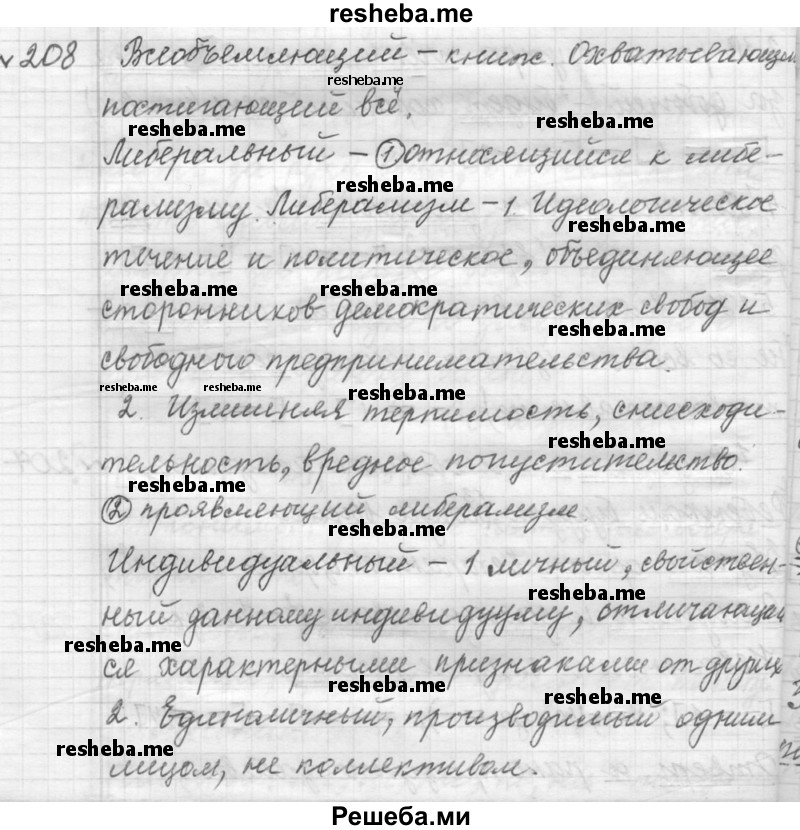 resheba.me
№208 Всеобъемлющий – книж. Охватывающий
resheba.me
постигающий всё.
resheba.me resheba.me
Либеральный – ① относящийся к либе-
resheba.me
рализму. Либерализм – 1. Идеологическое
resheba.me
течение и политическое, объединяющее
resheba.me resheba.me
сторонников демократических свобод и
resheba.me
свободного предпринимательства.
resheba.me resheba.me resheba.me
2. Излишняя терпимость, снисходи-
resheba.me
тельность, вредное попустительство.
resheba.me
② проявляющий либерализм
resheba.me
Индивидуальный – 1 личный, свойствен-
resheba.me
ный данному индивидууму, отличающий
resheba.me
ся характерными признаками от других
resheba.me resheba.me
2. Единоличный, производимый, одним
resheba.me
лицом, не коллективом.
Решеба.ми